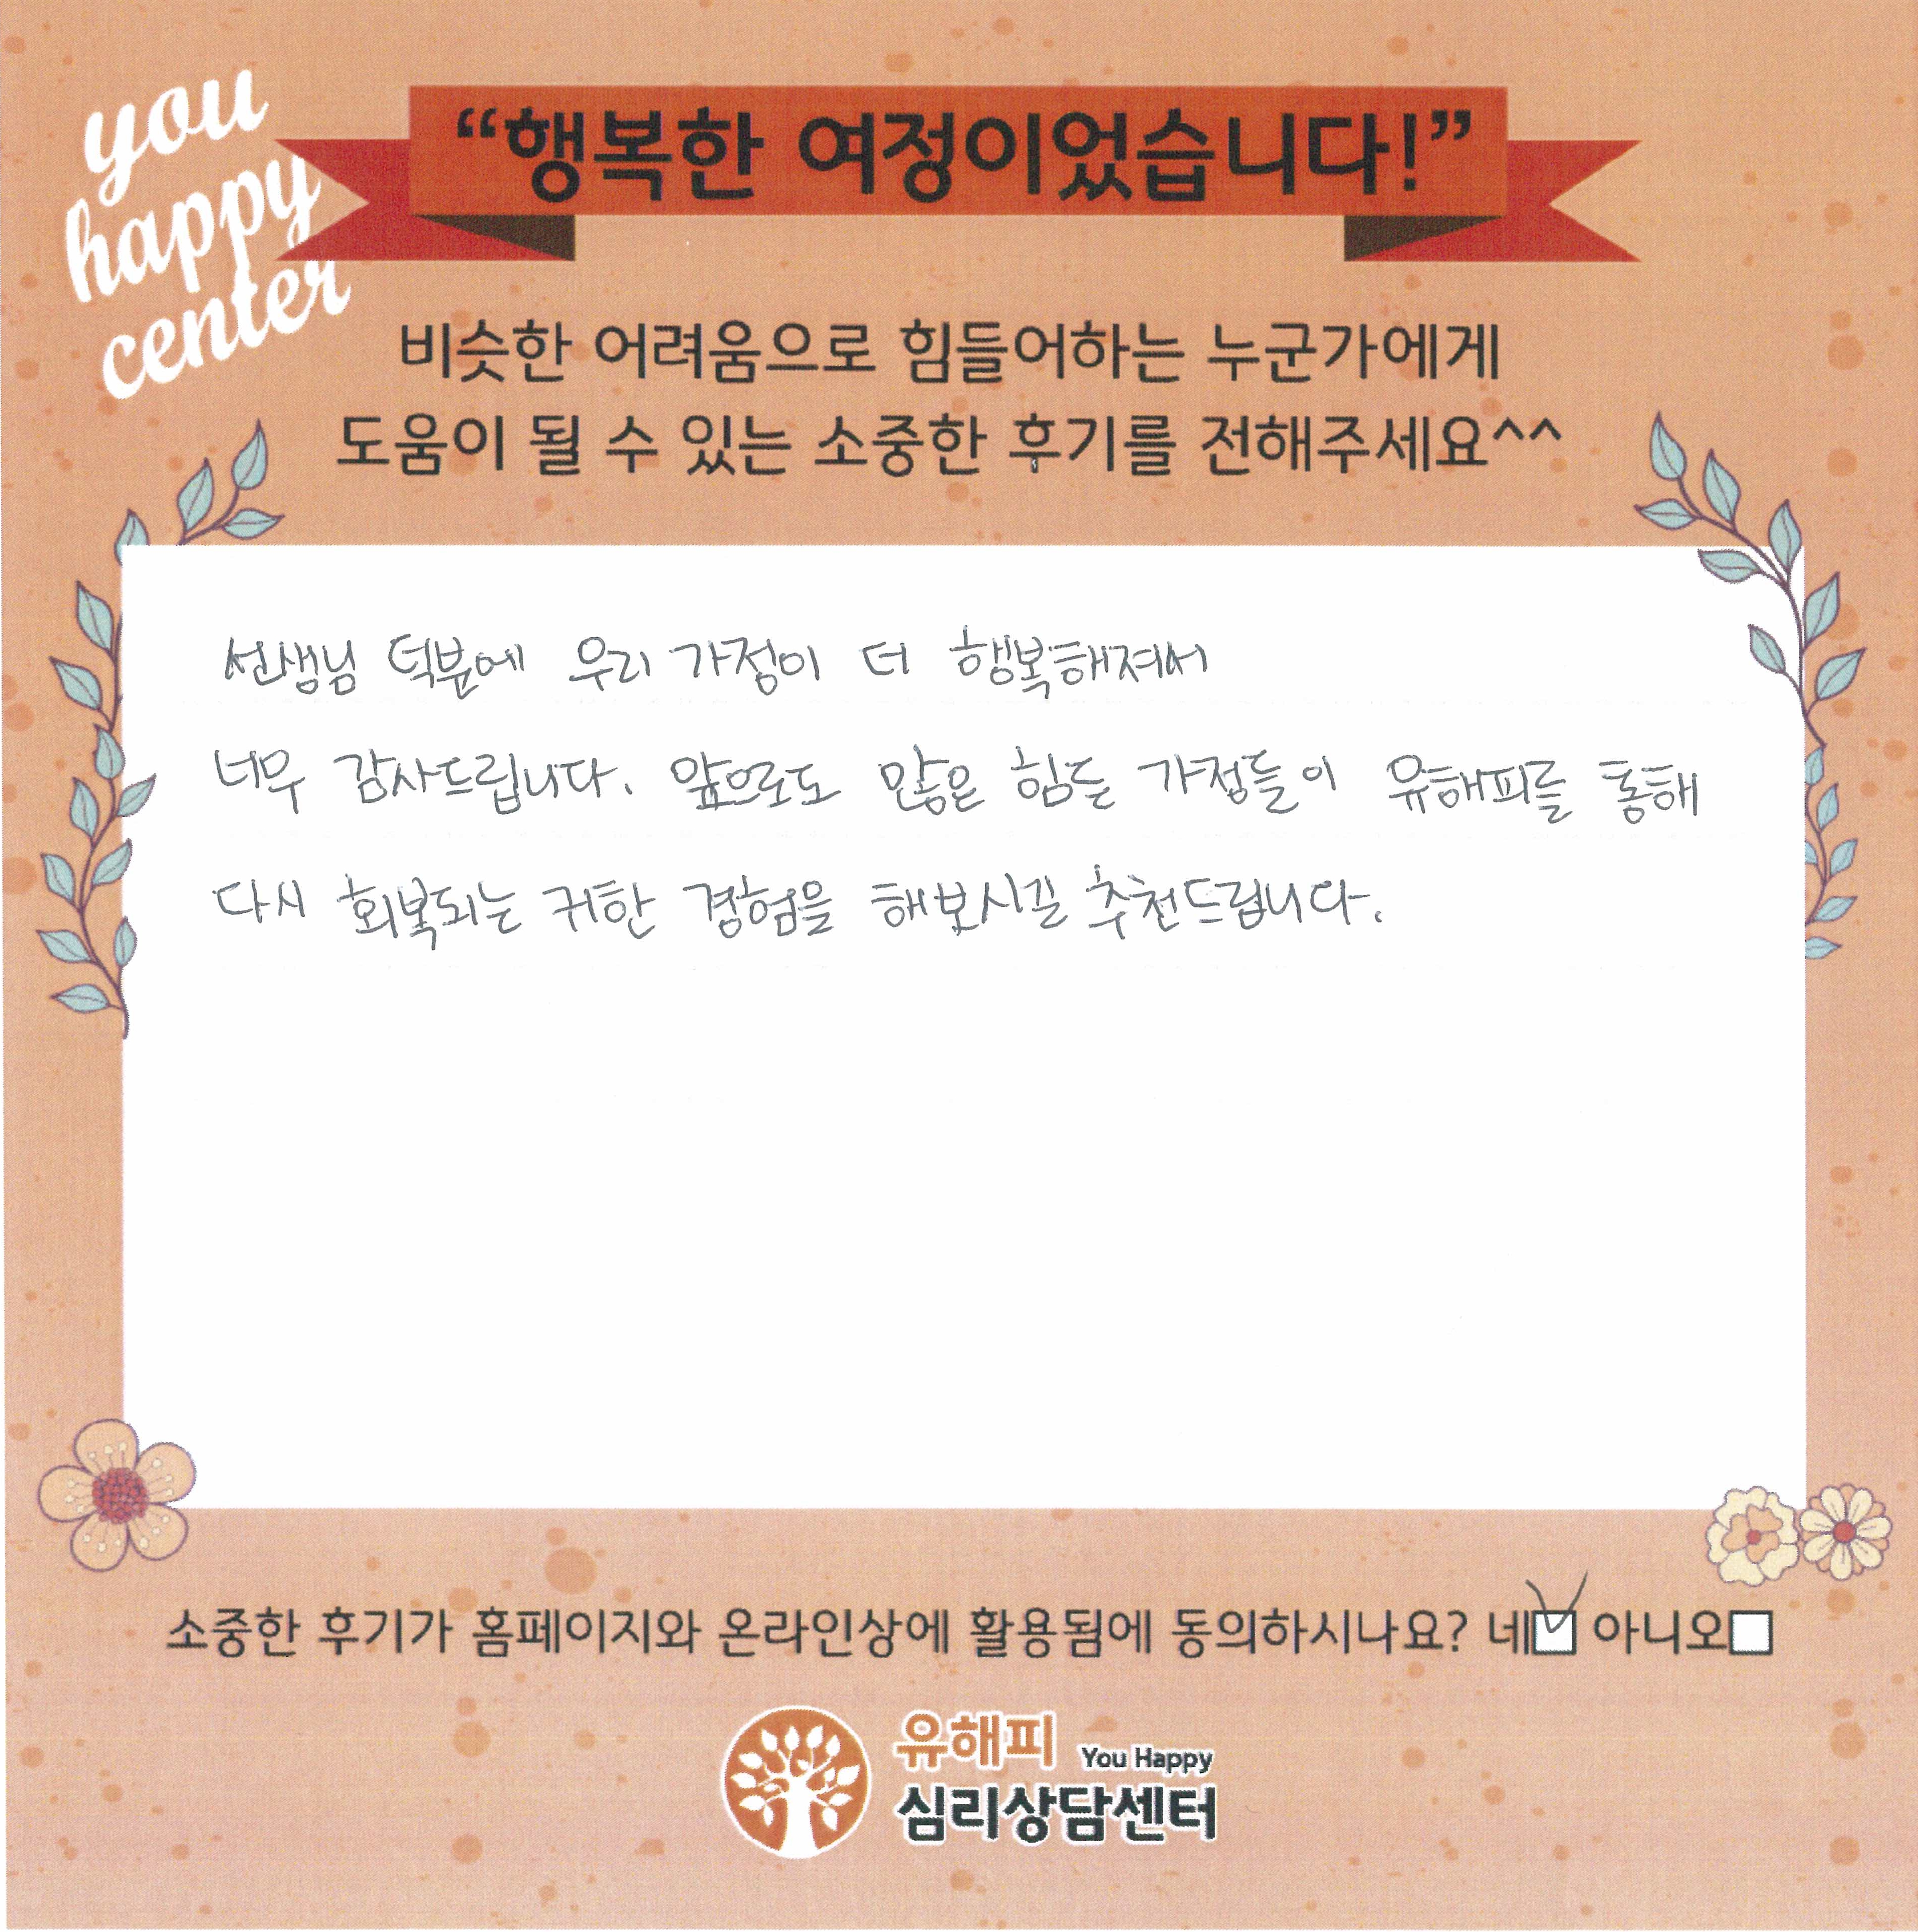 you
happy
center
“행복한 여정이었습니다!”
비슷한 어려움으로 힘들어하는 누군가에게
도움이 될 수 있는 소중한 후기를 전해주세요^^
선생님 덕분에 우리 가정이 더 행복해져서
너무 감사드립니다. 앞으로도 많은 힘든 가정들이 유해피를 통해
다시 회복되는 귀한 경험을 해보시길 추천드립니다.
소중한 후기가 홈페이지와 온라인상에 활용됨에 동의하시나요? 네☑ 아니오☐
유해피 You Happy
심리상담센터